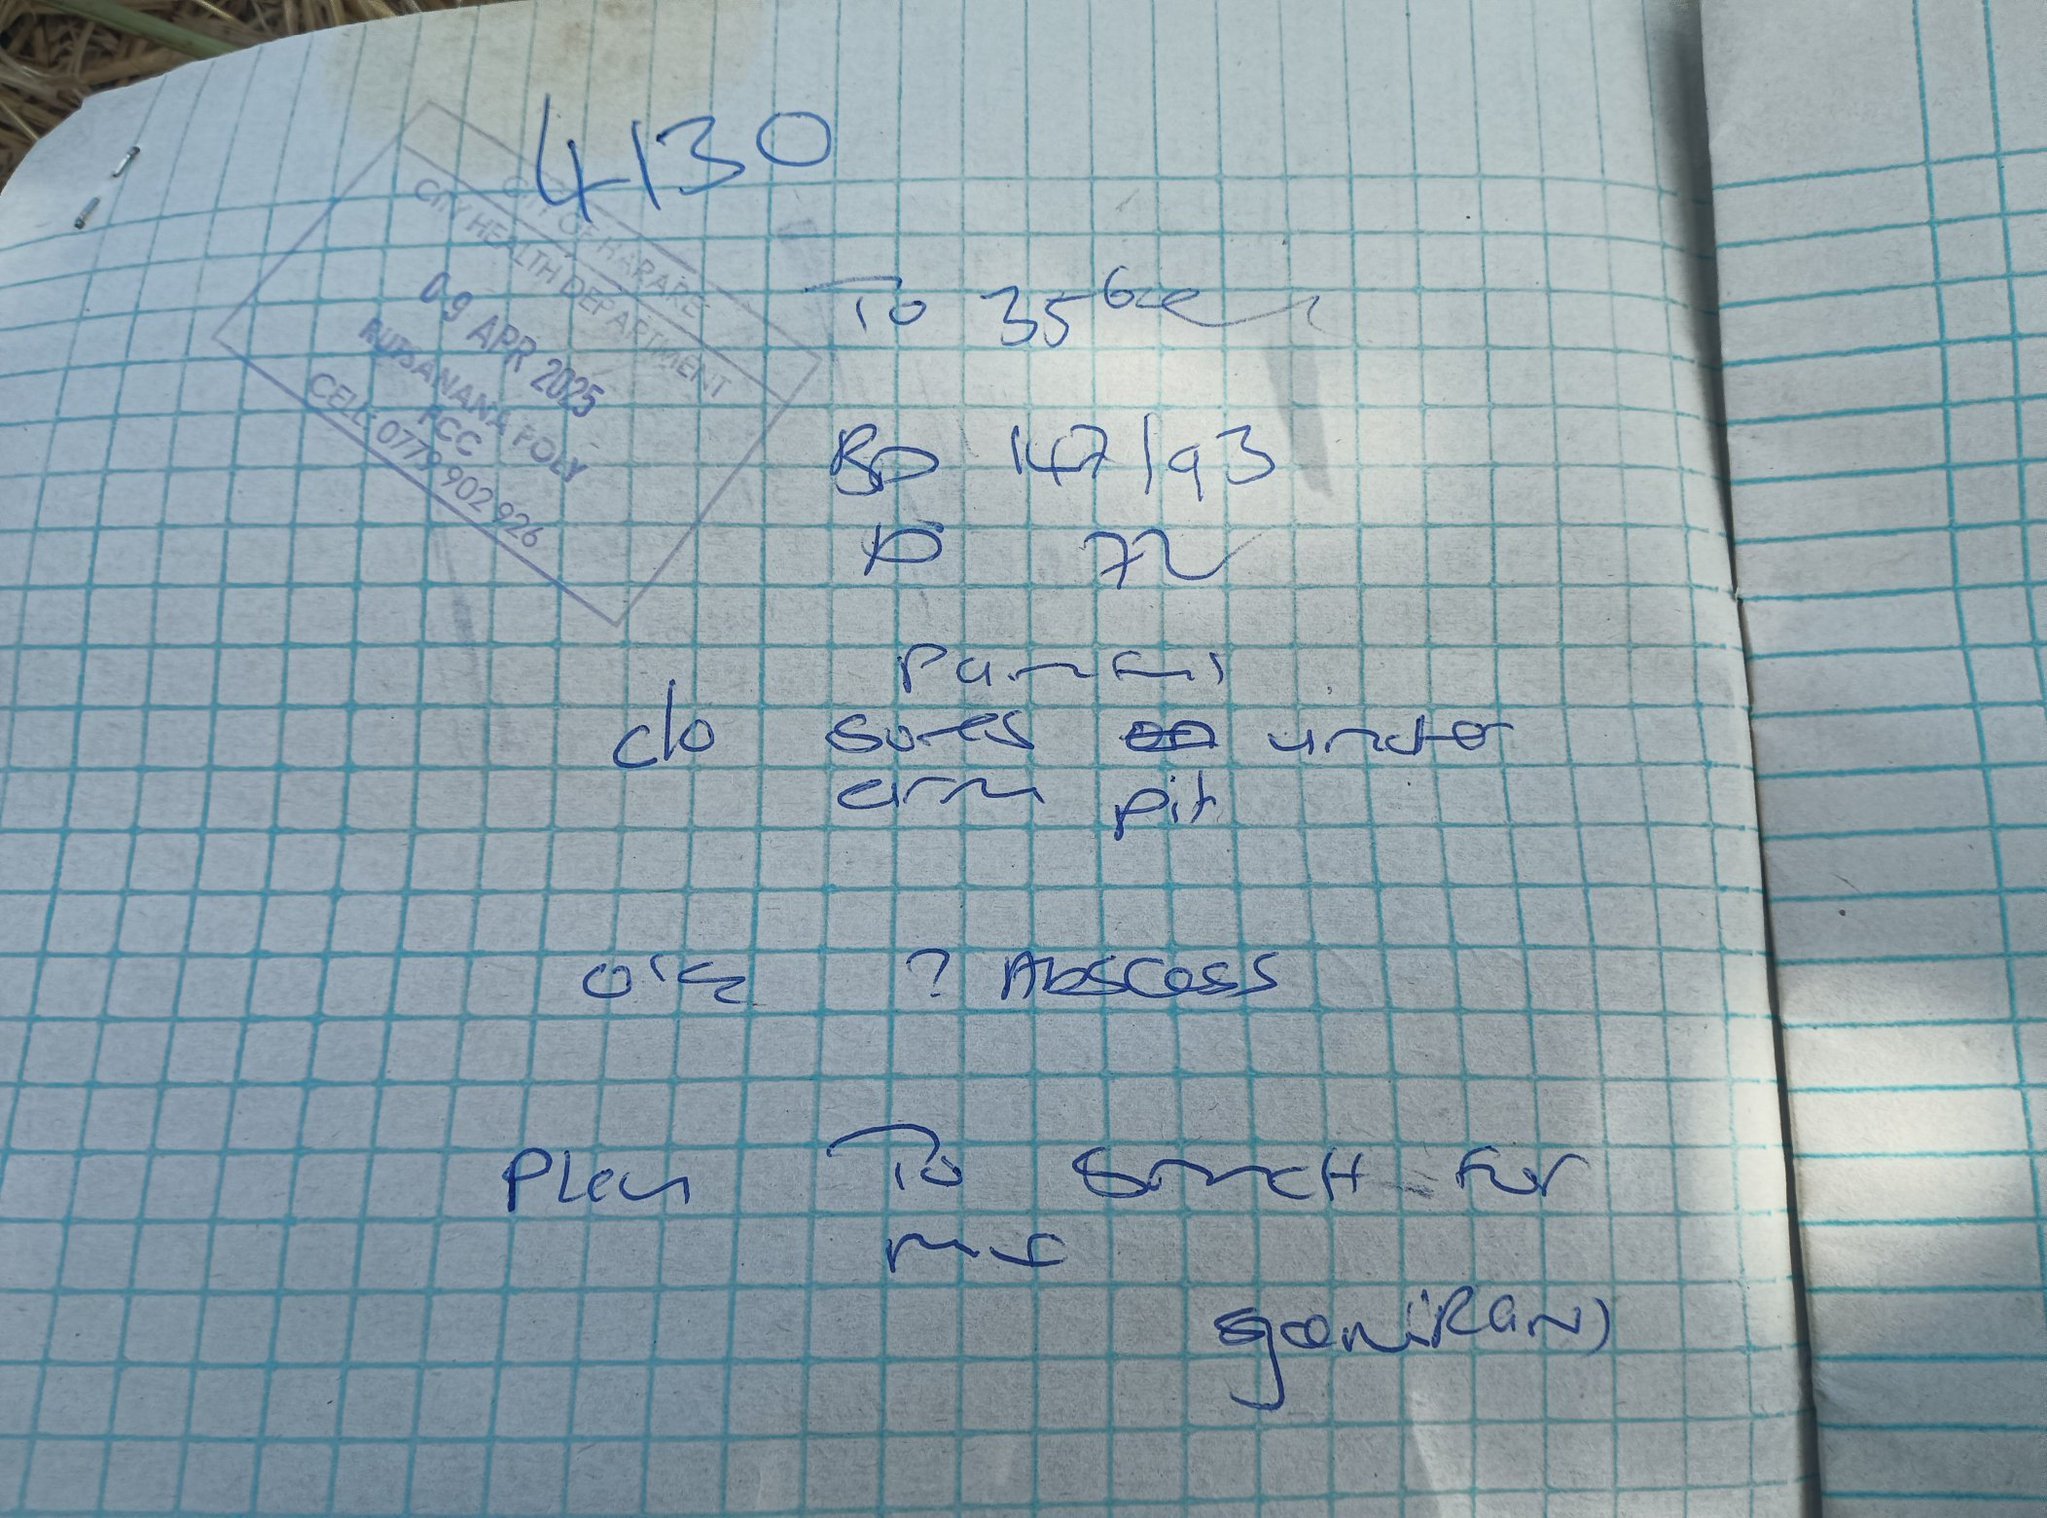 4130
CITY OF HARARE
CITY HEALTH DEPARTMENT
09 APR 2025
RUTSANANA POLY
FCC
CELL: 0779 902 926
To 35⁶
BP 147/93
P 72
Painful
c/o sores under
arm pit
O/E ? Abscess
Plan To for